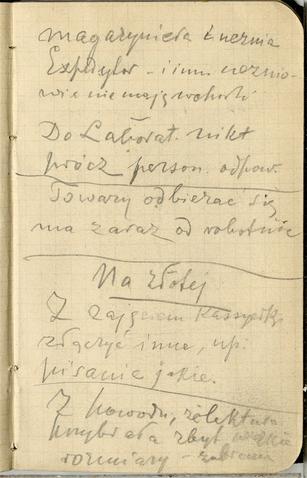 magazyniera i ucznia
Expedytor - i inn. ucznio-
wie nie mają wchodzi
Do Laborat. nikt
prócz person. odpow.
Towary odbierać się
ma zaraz od robotnic
Na złotej
Z zajęciem kassyerki
złączyć inne, np.
pisanie jakie.
Z powodu,
przybrała zbyt wielkie
rozmiary -